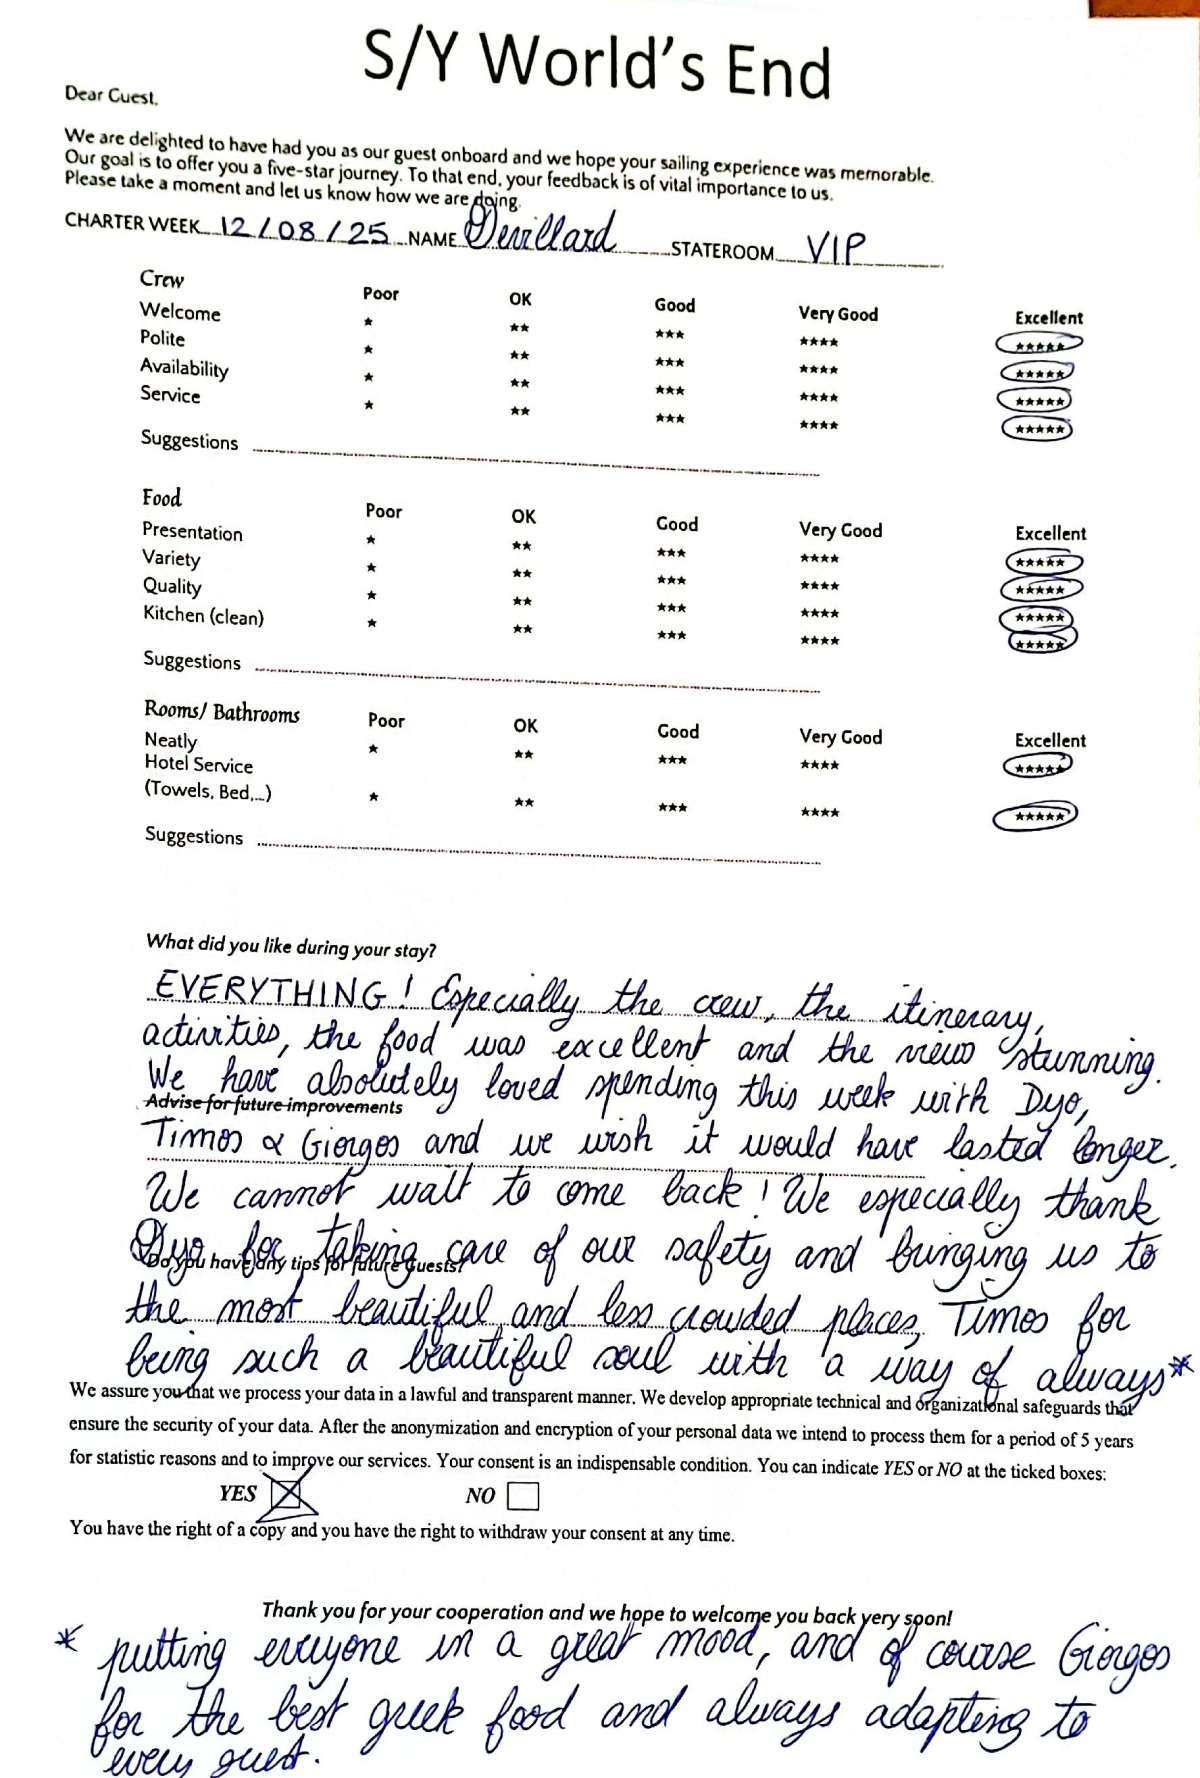 S/Y World's End
Dear Guest,
We are delighted to have had you as our guest onboard and we hope your sailing experience was memorable.
Our goal is to offer you a five-star journey. To that end, your feedback is of vital importance to us.
Please take a moment and let us know how we are doing.
CHARTER WEEK 12/08/25 NAME Devillard STATEROOM VIP
Crew Poor OK Good Very Good Excellent
Welcome ★ ★★ ★★★ ★★★★ ★★★★★
Polite ★ ★★ ★★★ ★★★★ ★★★★★
Availability ★ ★★ ★★★ ★★★★ ★★★★★
Service ★ ★★ ★★★ ★★★★ ★★★★★
Suggestions
Food Poor OK Good Very Good Excellent
Presentation ★ ★★ ★★★ ★★★★ ★★★★★
Variety ★ ★★ ★★★ ★★★★ ★★★★★
Quality ★ ★★ ★★★ ★★★★ ★★★★★
Kitchen (clean) ★ ★★ ★★★ ★★★★ ★★★★★
Suggestions
Rooms/ Bathrooms Poor OK Good Very Good Excellent
Neatly ★ ★★ ★★★ ★★★★ ★★★★★
Hotel Service
(Towels, Bed,...) ★ ★★ ★★★ ★★★★ ★★★★★
Suggestions
What did you like during your stay?
EVERYTHING! Especially the crew, the itinerary,
activities, the food was excellent and the view stunning.
We have absolutely loved spending this week with Dyo,
Advise for future improvements
Timos & Giorgos and we wish it would have lasted longer.
We cannot wait to come back! We especially thank
Dyo for taking care of our safety and bringing us to
Do you have any tips for future Guests?
the most beautiful and less crowded places, Timos for
being such a beautiful soul with a way of always*
We assure you that we process your data in a lawful and transparent manner. We develop appropriate technical and organizational safeguards that
ensure the security of your data. After the anonymization and encryption of your personal data we intend to process them for a period of 5 years
for statistic reasons and to improve our services. Your consent is an indispensable condition. You can indicate YES or NO at the ticked boxes:
YES NO
You have the right of a copy and you have the right to withdraw your consent at any time.
Thank you for your cooperation and we hope to welcome you back very soon!
* putting everyone in a great mood, and of course Giorgos
for the best greek food and always adapting to
every guest.